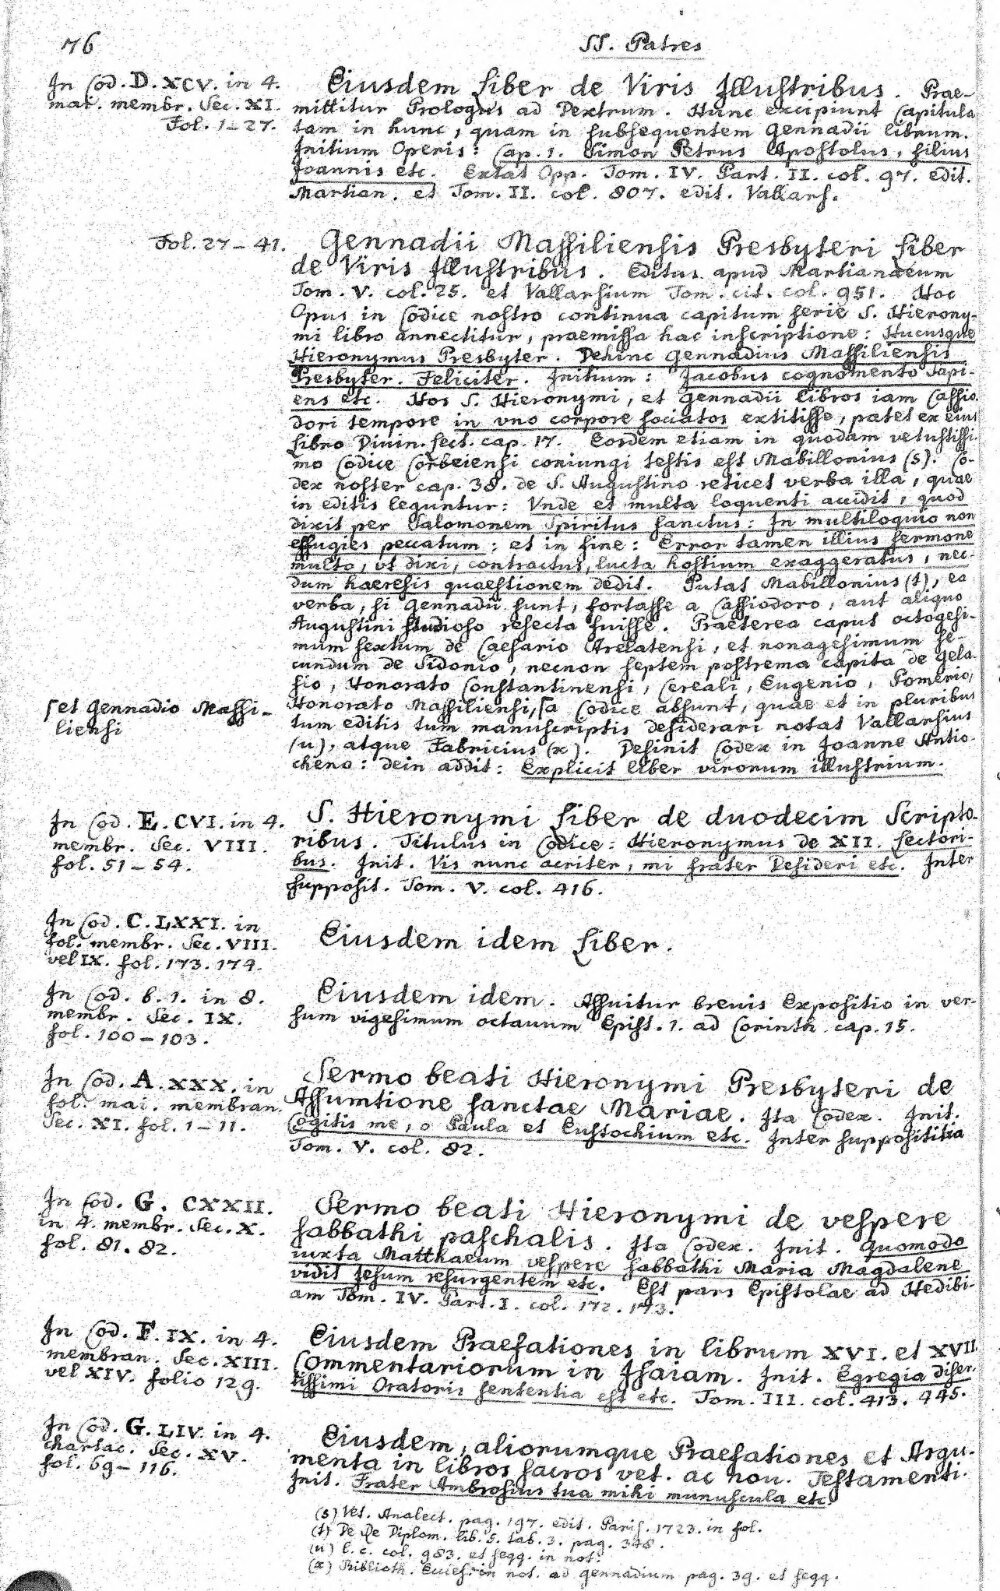 76
SS. Patres
In Cod. D. XCV. in 4.
mai. membr. Sec. XI.
Fol. 1-27.
Eiusdem Liber de Viris Illustribus. Prae-
mittitur Prologus ad Dextrum. Hunc excipiunt Capitula
tam in hunc, quam in subsequentem Gennadii librum.
Initium Operis: Cap. 1. Simon Petrus Apostolus, filius
Joannis etc. Extat Opp. Tom. IV. Part. II. col. 97. edit.
Martian. et Tom. II. col. 807. edit. Vallars.
Fol. 27-41.
Gennadii Massiliensis Presbyteri Liber
de Viris Illustribus. Editus apud Martianaeum
Tom. V. col. 25. et Vallarsium Tom. cit. col. 951. Hoc
Opus in Codice nostro continua capitum serie S. Hierony-
mi libro annectitur, praemissa hac inscriptione: Hucusque
Hieronymus Presbyter. Dehinc Gennadius Massiliensis
Presbyter. Feliciter. Initium: Jacobus cognomento Sapi-
ens etc. Hos S. Hieronymi, et Gennadii libros iam Cassio-
dori tempore in vno corpore sociatos extitisse, patet ex eius
Libro Divin. Lect. cap. 17. Eosdem etiam in quodam vetustissi-
mo Codice Corbeiensi coniungi testis est Mabillonius (s). Co-
dex noster cap. 38. de S. Augustino reticet verba illa, quae
in editis leguntur: Vnde et multa loquenti accidit, quod
dixit per Salomonem Spiritus sanctus: In multiloquio non
effugies peccatum; et in fine: Error tamen illius sermone
multo, vt dixi, contractus, lucta hostium exaggeratus, nec-
dum haeresis quaestionem dedit. Putat Mabillonius (t), ea
verba, si Gennadii sunt, fortasse a Cassiodoro, aut aliquo
Augustini studioso resecta fuisse. Praeterea caput octogesi-
mum sextum de Caesario Arelatensi, et nonagesimum se-
cundum de Sidonio, necnon septem postrema capita de Gela-
sio, Honorato Constantinensi, Cereali, Eugenio, Pomerio,
Honorato Massiliensi, [a Codice absunt, quae et in pluribus
[et Gennadio Massi-
liensi
tum editis tum manuscriptis desiderari notat Vallarsius
(u), atque Fabricius (x). Desinit Codex in Joanne Antio-
cheno: dein addit: Explicit liber virorum illustrium.
In Cod. E. CVI. in 4.
membr. Sec. VIII.
fol. 51-54.
S. Hieronymi Liber de duodecim Scripto-
ribus. Titulus in Codice: Hieronymus de XII. Lectori-
bus. Init. Vis nunc acriter, mi frater Desideri etc. Inter
supposit. Tom. V. col. 416.
In Cod. C. LXXI. in
fol. membr. Sec. VIII.
vel IX. fol. 173. 174.
Eiusdem idem Liber.
In Cod. b. 1. in 8.
membr. Sec. IX.
fol. 100-103.
Eiusdem idem. Assuitur brevis Expositio in ver-
sum vigesimum octauum Epist. 1. ad Corinth. cap. 15.
In Cod. A. XXX. in
fol. mai. membran.
Sec. XI. fol. 1-11.
Sermo beati Hieronymi Presbyteri de
Assumtione sanctae Mariae. Ita Codex. Init.
Cogitis me, o Paula et Eustochium etc. Inter supposititia
Tom. V. col. 82.
In Cod. G. CXXII.
in 4. membr. Sec. X.
fol. 81. 82.
Sermo beati Hieronymi de vespere
sabbathi paschalis. Ita Codex. Init. Quomodo
iuxta Matthaeum vespere sabbathi Maria Magdalene
vidit Jesum resurgentem etc. Est pars Epistolae ad Hedibi-
am Tom. IV. Part. I. col. 172. 173.
In Cod. F. IX. in 4.
membran. Sec. XIII.
vel XIV. folio 129.
Eiusdem Praefationes in librum XVI. et XVII.
Commentariorum in Isaiam. Init. Egregia diser-
tissimi Oratoris sententia est etc. Tom. III. col. 413. 445.
In Cod. G. LIV. in 4.
chartac. Sec. XV.
fol. 69-116.
Eiusdem, aliorumque Praefationes et Argu-
menta in libros sacros vet. ac nou. Testamenti.
Init. Frater Ambrosius tua mihi munuscula etc.
(s) Vet. Analect. pag. 197. edit. Paris. 1723. in fol.
(t) De Re Diplom. lib. 5. tab. 3. pag. 348.
(u) l. c. col. 983. et seqq. in not.
(x) Biblioth. Eccles. in not. ad Gennadium pag. 39. et seqq.